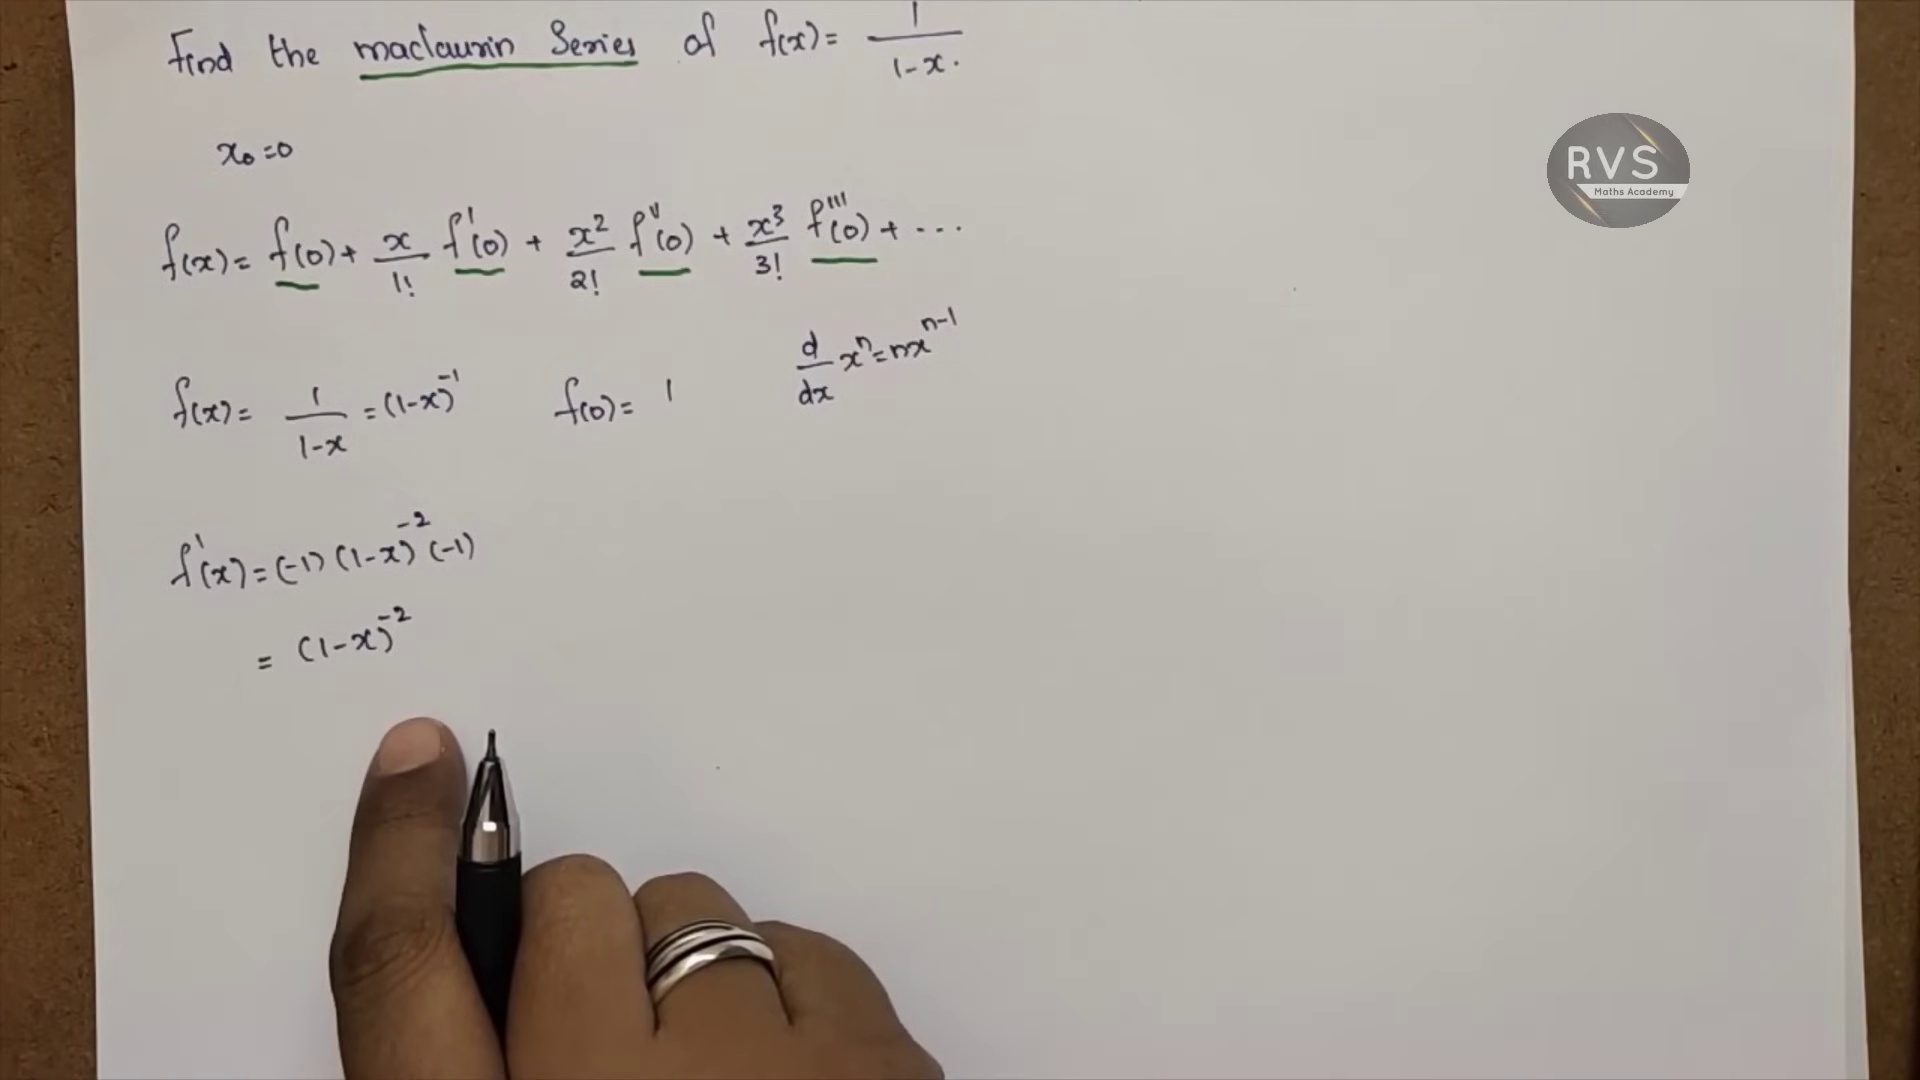 Find the maclaurin Series of f(x)= 1/1-x.
RVS
Maths Academy
x₀=0
f(x)= f(0)+ x/1! f'(0) + x²/2! f''(0) + x³/3! f'''(0) + ...
d/dx xⁿ=nxⁿ⁻¹
f(x)= 1/1-x =(1-x)⁻¹ f(0)= 1
f'(x)=(-1)(1-x)⁻²(-1)
= (1-x)⁻²